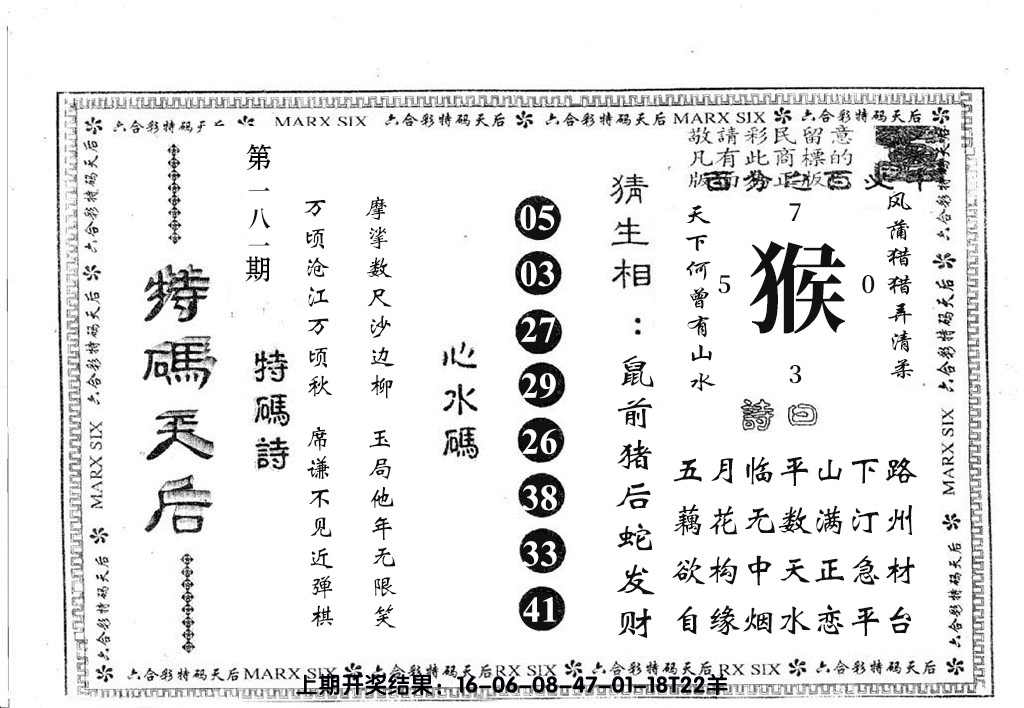 六合彩特码天后 MARX SIX 六合彩特码天后 六合彩特码天后 MARX SIX 六合彩特码天后
敬請彩民留意
凡有此商標的
版 正版
特碼天后
第一八一期
特碼詩
万顷沧江万顷秋 席谦不见近弹棋
摩挲数尺沙边柳 玉局他年无限笑
心水碼
05
03
27
29
26
38
33
41
猜生相：鼠前猪后蛇发财
天下何曾有山水
7
5
猴
0
3
风蒲猎猎弄清柔
詩曰
五月临平山下路
藕花无数满汀州
欲构中天正急材
自缘烟水恋平台
六合彩特码天后
六合彩特码天后
MARX SIX
六合彩特码天后
六合彩特码天后
六合彩特码天后
MARX SIX
六合彩特码天后
六合彩特码天后 MARX SIX 六合彩特码天后 RX SIX 六合彩特码天后 RX SIX 六合彩特码天后
上期开奖结果：16-06-08-47-01-18T22羊